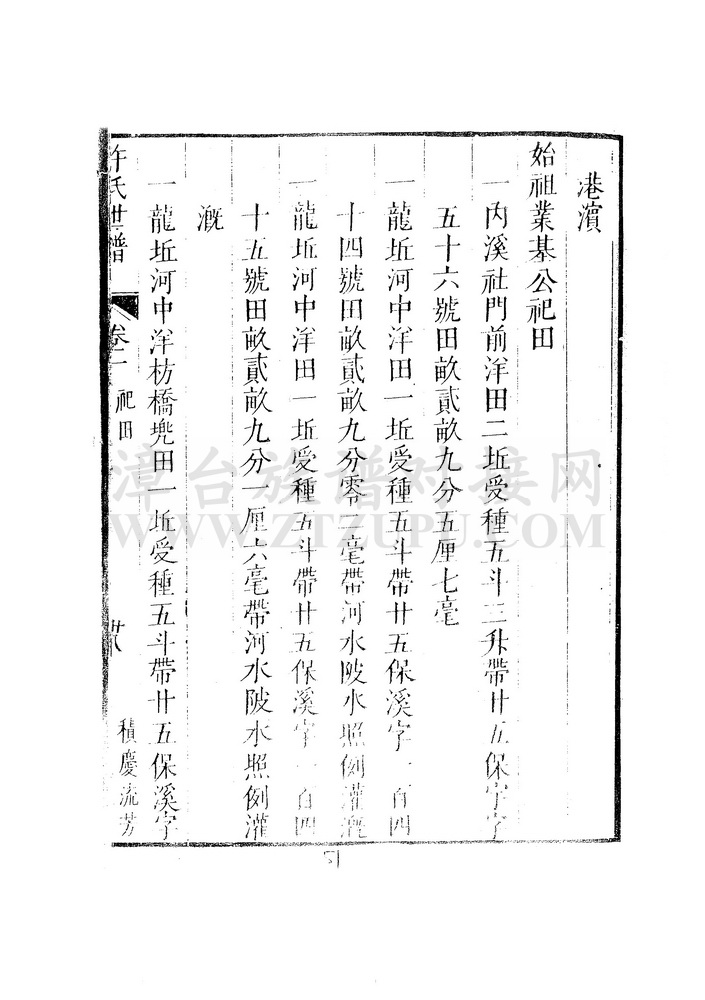 港濱
始祖業基公祀田
一內溪社門前洋田二坵受種五斗三升帶廿五保字字
五十六號田畝貳畝九分五厘七毫
一龍坵河中洋田一坵受種五斗帶廿五保溪字一百四
十四號田畝貳畝九分零二毫帶河水陂水照例灌漑
一龍坵河中洋田一坵受種五斗帶廿五保溪字一百四
十五號田畝貳畝九分一厘六毫帶河水陂水照例灌
漑
一龍坵河中洋枋橋兠田一坵受種五斗帶廿五保溪字
許氏世譜 卷二 祀田 廿八 積慶流芳
漳台族谱对接网
WWW.ZTZUPU.COM